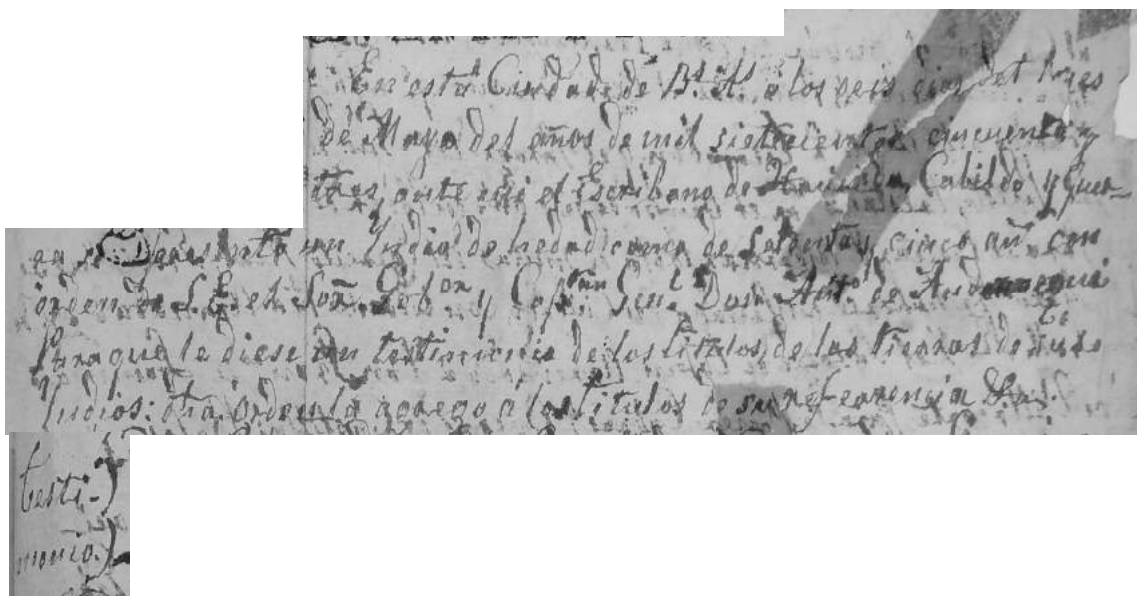 En esta Ciudad de Bs. As. a los seis dias del mes
de Mayo del años de mil sietecientos cincuenta y
tres, ante mi el Escribano de Hacienda, Cabildo y guer-
ra se presentó un Yndio de hedad como de y cinco añ. con
orden de S. E. el Sor. Gobor. y Capitan Genl. Don Anto. de Andonaegui
Para que le diese un testimonio de los titulos de las tierras de
Yndios: otra orden la agrego a los titulos de su referencia
testi-)
monio.)